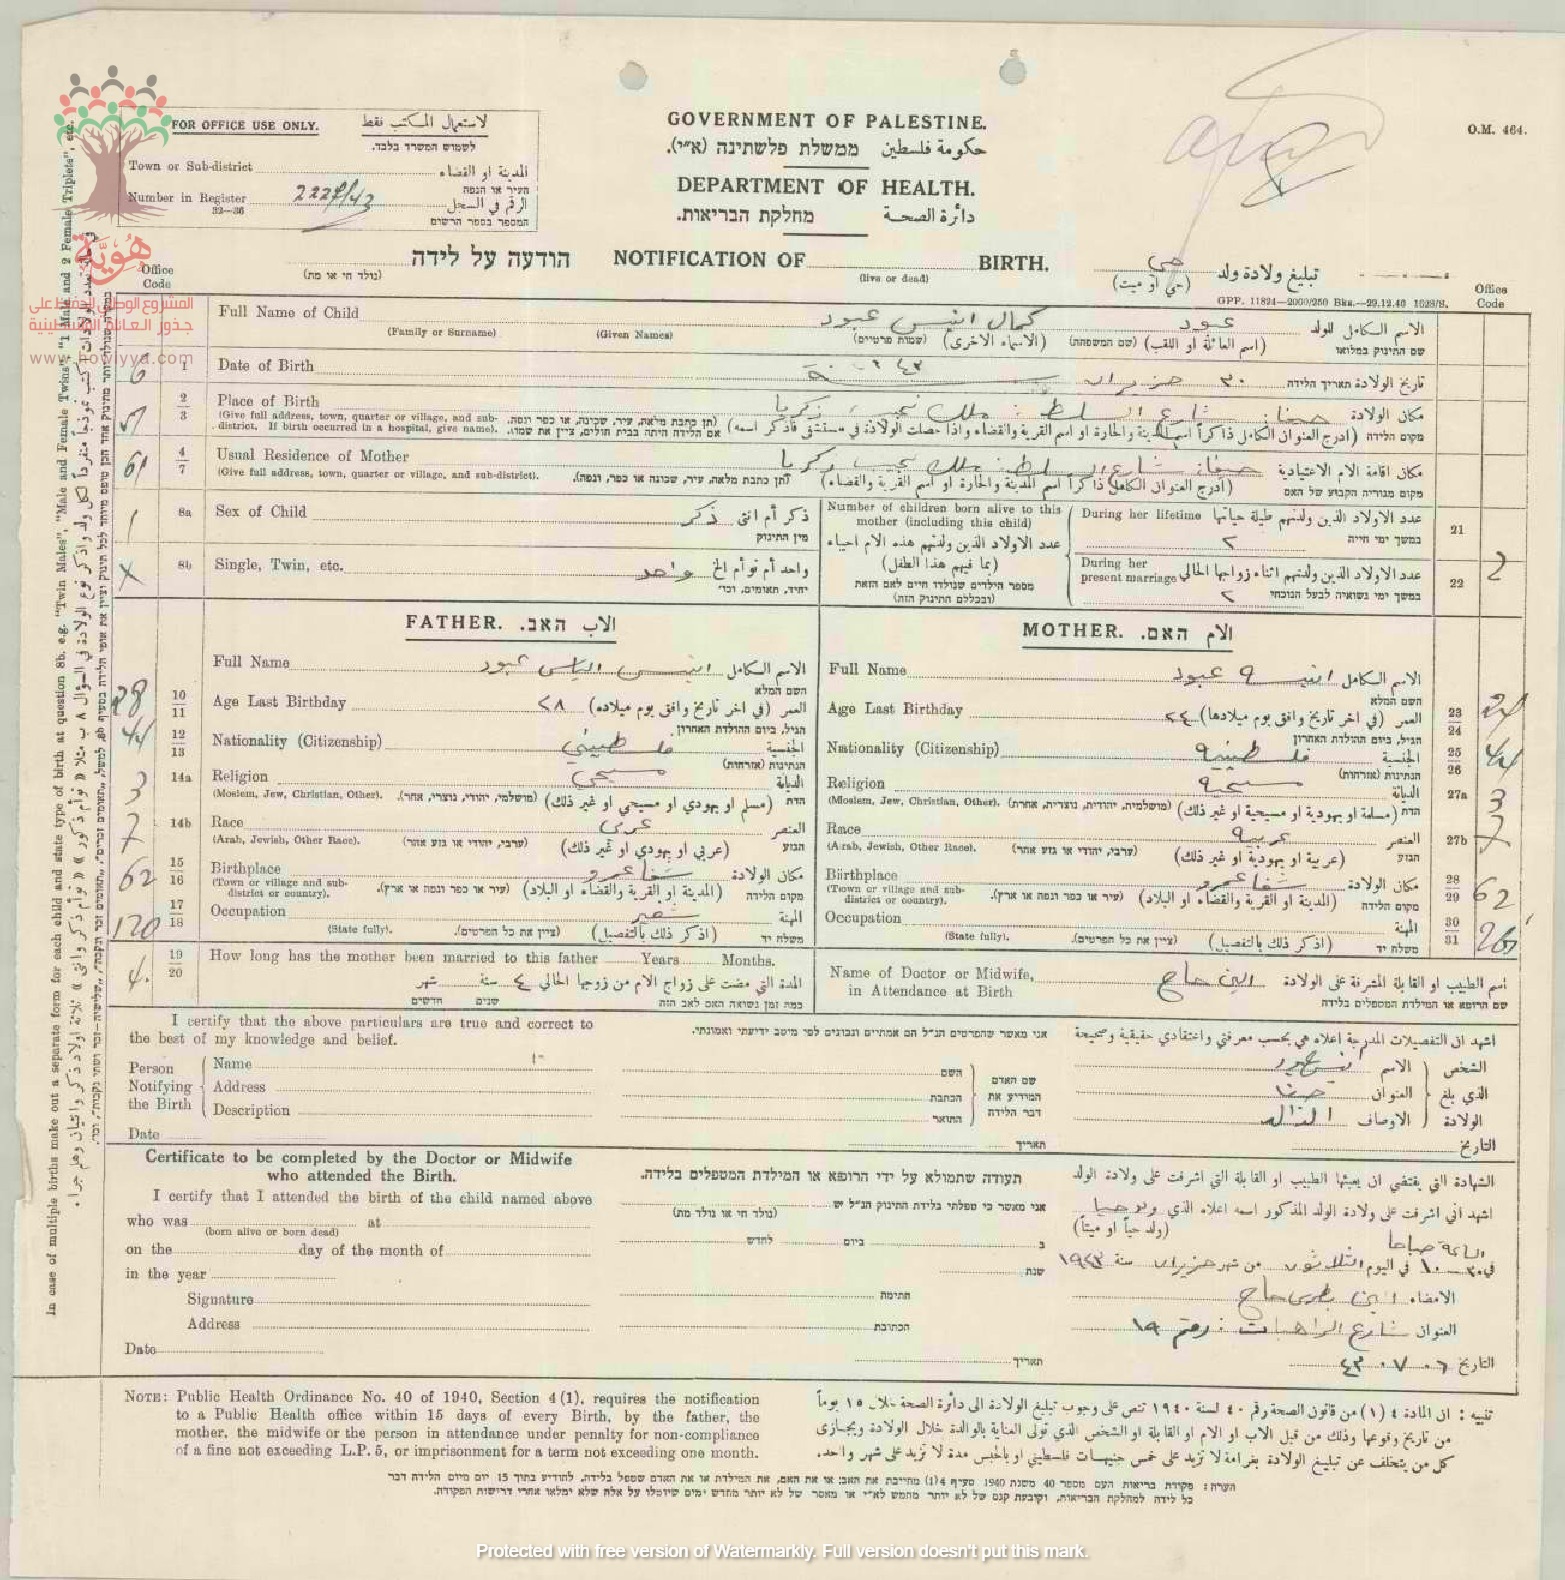 FOR OFFICE USE ONLY. لاستعمال المكتب فقط
לשמוש המשרד בלבד.
Town or Sub-district المدينة او القضاء
העיר או הנפה
Number in Register 2227/43 الرقم في السجل
32—36 המספר בספר הרשום
GOVERNMENT OF PALESTINE.
حكومة فلسطين ממשלת פלשתינה (א״י).
DEPARTMENT OF HEALTH.
دائرة الصحة מחלקת הבריאות.
O.M. 464.
הודעה על לידה NOTIFICATION OF BIRTH. تبليغ ولادة ولد حي
(נולד חי או מת) (live or dead) (حي او ميت)
GPP. 11824—2000/250 Bks.—29.12.40 1028/S.
Office Code Office Code
هوية
المشروع الوطني للحفاظ على
جذور العائلة الفلسطينية
www.howiyya.com
Full Name of Child كمال انيس عبود عبود الاسم الكامل للولد
(Family or Surname) (Given Names) (שמות פרטיים) (الاسماء الاخرى) (שם המשפחה) (اسم العائلة او اللقب) שם התינוק במלואו
6 1 Date of Birth ٣٠ حزيران سنة ١٩٤٣ تاريخ الولادة תאריך הלידה
2/3 Place of Birth حيفا شارع السلط : ملك نجيب زكريا مكان الولادة
(Give full address, town, quarter or village, and sub-district. If birth occurred in a hospital, give name). (תן כתבת מלאה, עיר, שכונה, או כפר ונפה. אם הלידה היתה בבית חולים, ציין את שמו). (ادرج العنوان الكامل ذاكراً اسم المدينة والحارة او اسم القرية والقضاء واذا حصلت الولادة في مستشفى فاذكر اسمه) מקום הלידה
61 4/7 Usual Residence of Mother حيفا شارع السلط ملك نجيب زكريا مكان اقامة الام الاعتيادية
(Give full address, town, quarter or village, and sub-district). (תן כתבת מלאה, עיר, שכונה או כפר, ונפה). (ادرج العنوان الكامل ذاكراً اسم المدينة والحارة او اسم القرية والقضاء) מקום מגוריה הקבוע של האם
1 8a Sex of Child ذكر ذكر أم انثى
מין התינוק
x 8b Single, Twin, etc. واحد واحد أم توأم الخ
יחיד, תאומים, וכו׳
Number of children born alive to this mother (including this child)
عدد الاولاد الذين ولدتهم هذه الام احياء (بما فيهم هذا الطفل)
מספר הילדים שנולדו חיים לאם הזאת (ובכללם התינוק הזה)
During her lifetime عدد الاولاد الذين ولدتهم طيلة حياتها 21
٢ במשך ימי חייה
During her present marriage عدد الاولاد الذين ولدتهم اثناء زواجها الحالي 22 2
٢ במשך ימי נשואיה לבעל הנוכחי
FATHER. الاب האב.
Full Name انيس الياس عبود الاسم الكامل
השם המלא
28 10/11 Age Last Birthday ٢٨ العمر (في اخر تاريخ وافق يوم ميلاده)
הגיל, ביום ההולדת האחרון.
44 12/13 Nationality (Citizenship) فلسطيني الجنسية
הנתינות (אזרחות)
3 14a Religion مسيحي الديانة
(Moslem, Jew, Christian, Other). (מושלמי, יהודי, נוצרי, אחר). (مسلم او يهودي او مسيحي او غير ذلك) הדת
7 14b Race عربي العنصر
(Arab, Jewish, Other Race). (ערבי, יהודי או גזע אחר) (عربي او يهودي او غير ذلك) הגזע
62 15/16 Birthplace شفاعمرو مكان الولادة
(Town or village and sub-district or country). (עיר או כפר ונפה או ארץ). (المدينة او القرية والقضاء او البلاد) מקום הלידה
120 17/18 Occupation المهنة
(State fully). (ציין את כל הפרטים). (اذكر ذلك بالتفصيل) משלח יד
MOTHER. الام האם.
Full Name انيسه عبود الاسم الكامل
השם המלא
Age Last Birthday ٢٤ العمر (في اخر تاريخ وافق يوم ميلادها) 23/24 24
הגיל, ביום ההולדת האחרון
Nationality (Citizenship) فلسطينيه الجنسية 25/26 44
הנתינות (אזרחות)
Religion مسيحية الديانة 27a 3
(Moslem, Jew, Christian, Other). (מושלמית, יהודית, נוצרית, אחרת) (مسلمة او يهودية او مسيحية او غير ذلك) הדת
Race عربيه العنصر 27b 7
(Arab, Jewish, Other Race). (ערבי, יהודי או גזע אחר) (عربية او يهودية او غير ذلك) הגזע
Birthplace شفاعمرو مكان الولادة 28/29 62
(Town or village and sub-district or country). (עיר או כפר ונפה או ארץ). (المدينة او القرية والقضاء او البلاد) מקום הלידה
Occupation المهنة 30/31
(State fully). (ציין את כל הפרטים). (اذكر ذلك بالتفصيل) משלח יד
4. 19/20 How long has the mother been married to this father Years Months.
المدة التي مضت على زواج الام من زوجها الحالي ٤ سنة شهر
כמה זמן נשואה האם לאב הזה שנים חדשים
Name of Doctor or Midwife, in Attendance at Birth حاج اسم الطبيب او القابلة المشرفة على الولادة
שם הרופא או המילדת המטפלים בלידה
I certify that the above particulars are true and correct to the best of my knowledge and belief.
אני מאשר שהפרטים הנ״ל הם אמתיים ונכונים לפי מיטב ידיעתי ואמונתי.
اشهد ان التفصيلات المدرجة اعلاه هي بحسب معرفتي واعتقادي حقيقية وصحيحة
Person Notifying the Birth
Name השם الاسم انيس عبود
Address הכתבת العنوان حيفا
Description התואר الاوصاف الوالد
שם האדם המודיע את דבר הלידה
الشخص الذي بلغ الولادة
Date תאריך التاريخ
Certificate to be completed by the Doctor or Midwife who attended the Birth.
תעודה שתמולא על ידי הרופא או המילדת המטפלים בלידה.
الشهادة التي يقتضي ان يعبئها الطبيب او القابلة التي اشرفت على ولادة الولد
I certify that I attended the birth of the child named above
who was at
(born alive or born dead)
on the day of the month of
in the year
Signature
Address
Date
אני מאשר כי טפלתי בלידת התינוק הנ״ל ש
(נולד חי או נולד מת)
ב ביום לחדש
שנת
חתימת
הכתובת
תאריך
اشهد اني اشرفت على ولادة الولد المذكور اسمه اعلاه الذي ولد حيا
(ولد حياً او ميتاً)
الساعة صباحا
في ١٠-٣٠ في اليوم الثلاثون من شهر حزيران سنة ١٩٤٣
الامضاء بطرس حاج
العنوان شارع الراهبات : رقم ١٩
التاريخ ٦ ٠ ٧ ٠ ٤٣
NOTE: Public Health Ordinance No. 40 of 1940, Section 4(1), requires the notification
to a Public Health office within 15 days of every Birth, by the father, the
mother, the midwife or the person in attendance under penalty for non-compliance
of a fine not exceeding L.P. 5, or imprisonment for a term not exceeding one month.
تنبيه : ان المادة ٤ (١) من قانون الصحة رقم ٤٠ لسنة ١٩٤٠ تنص على وجوب تبليغ الولادة الى دائرة الصحة خلال ١٥ يوماً
من تاريخ وقوعها وذلك من قبل الاب او الام او القابلة او الشخص الذي تولى العناية بالوالدة خلال الولادة ويجازى
كل من يتخلف عن تبليغ الولادة بغرامة لا تزيد على خمس جنيهات فلسطيني او بالحبس مدة لا تزيد على شهر واحد.
הערה: פקודת בריאות העם מספר 40 משנת 1940 סעיף 4(1) מחייבת את האב, או את האם, את המילדת או את האדם שטפל בלידה, להודיע בתוך 15 יום מיום הלידה דבר
כל לידה למחלקת הבריאות, וקובעת קנס של לא יותר מחמש לא״י או מאסר של לא יותר מחדש ימים שיוטלו על אלה שלא ימלאו אחרי דרישות הפקודה.
In case of multiple births make out a separate form for each child and state type of birth at question 8b. e.g. "Twin Males", "Male and Female Twins", "1 Male and 2 Female Triplets", etc.
Protected with free version of Watermarkly. Full version doesn't put this mark.